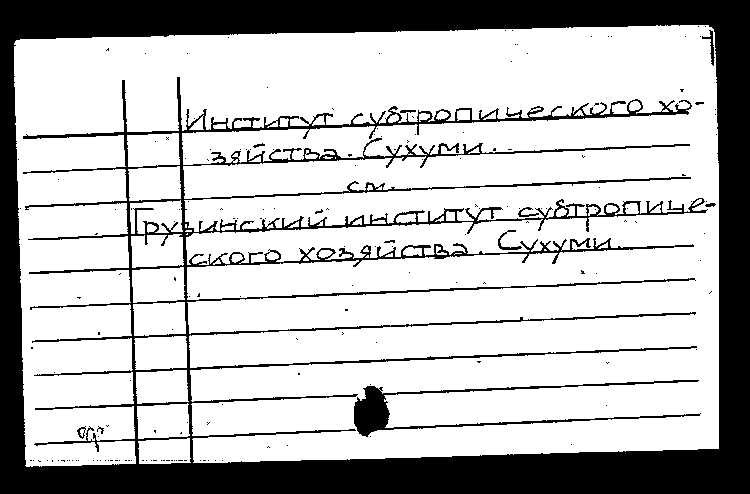 Институт субтропического хо-
зяйства. Сухуми.
см.
Грузинский институт субтропиче-
ского хозяйства. Сухуми.